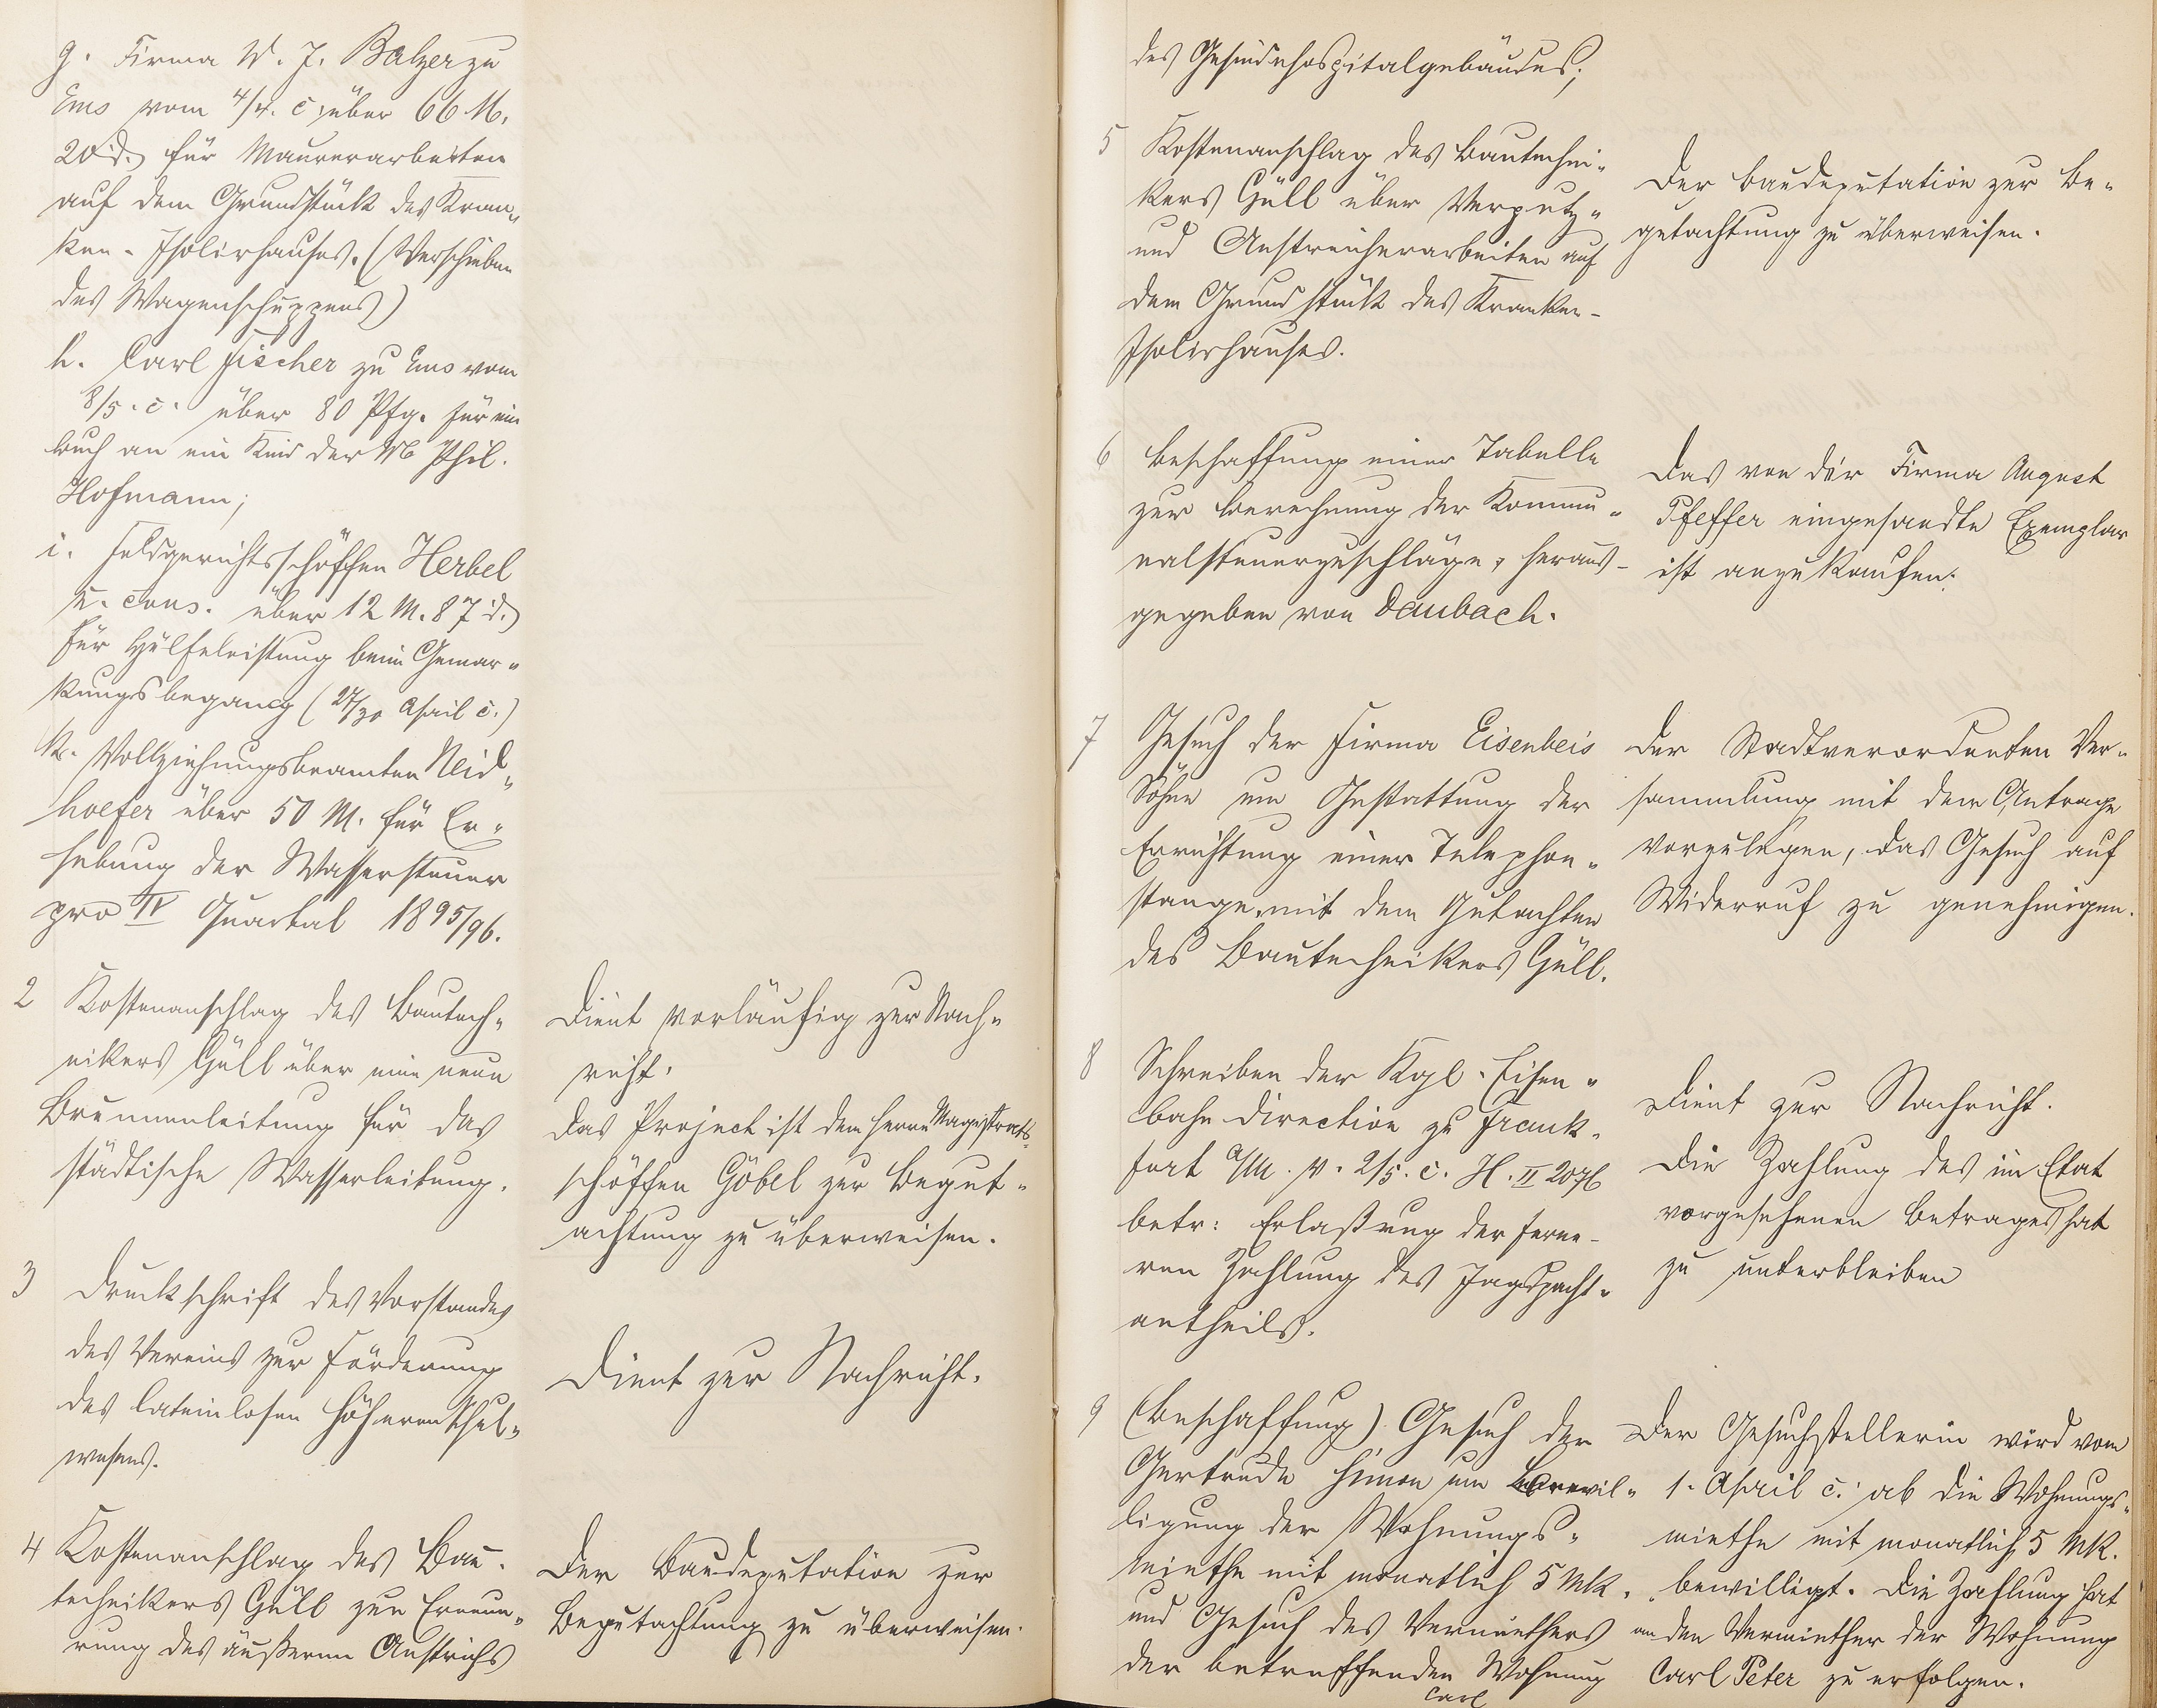 g. Firma W. J. Balzer zu
Ems vom 4/4. c. über 66 M.
20 d. für Maurerarbeiten
auf dem Grundstück des Kran„
ken-Isolirhauses. (Verschieben
des Wagenschuppens)
h. Carl Fischer zu Ems vom
8/5. c. über 80 Pfg. für ein
Buch an ein Kind der Phil.
Hofmann;
i. Feldgerichtsschöffen Herbel
u. cons. über 12 M. 87 d.
für Hülfeleistung beim Gemar„
kungsbegang (27/30 April c.)
k. Vollziehungsbeamten Neid„
hoefer über 50 M. für Er„
hebung der Wassersteuer
pro IV Quartal 1895/96.
2 Kostenanschlag des Bautech„
nikers Güll über eine neue
Brunnenleitung für das
städtische Wasserleitung.
Dient vorläufig zur Nach„
richt.
Das Project ist dem Herrn Magistrats„
schöffen Göbel zur Begut„
achtung zu überweisen.
3 Druckschrift des Vorstandes
des Vereins zur Förderung
des lateinlosen höheren Schul„
wesens.
Dient zur Nachricht.
4 Kostenanschlag des Bau„
technikers Güll zur Erneue„
rung des äußeren Anstrichs
Der Baudeputation zur
Begutachtung zu überweisen.
des Gesindehospitalgebäudes;
5 Kostenanschlag des Bautechni„
kers Güll über Verputz„
und Anstreicherarbeiten auf
dem Grundstück des Kranken-
Isolirhauses.
Der Baudeputation zur Be„
gutachtung zu überweisen.
6 Beschaffung einer Tabelle
zur Berechnung der Kommu„
nalsteuerzuschläge, heraus-
gegeben von Daubach.
Das von der Firma August
Pfeffer eingesandte Exemplar
ist anzukaufen.
7 Gesuch der Firma Eisenbeis
Söhne um Gestattung der
Errichtung einer Telephon„
stange, mit dem Gutachten
des Bautechnikers Güll.
Der Stadtverordneten Ver„
sammlung mit dem Antrage
vorzulegen, das Gesuch auf
Widerruf zu genehmigen.
8 Schreiben der Kgl. Eisen„
bahn Direction zu Frank„
furt a/M. v. 2/5. c. H. II 2076
betr: Erlaßung der ferne-
ren Zahlung des Jagdpacht„
antheils.
Dient zur Nachricht.
Die Zahlung des im Etat
vorgesehenen Betrages hat
zu unterbleiben
9 (Beschaffung) Gesuch der
Gertrude Simon um Bewil„
ligung der Wohnungs„
miethe mit monatlich 5 Mk.
und Gesuch des Vermiethers
der betreffenden Wohnung
Carl
Der Gesuchstellerin wird vom
1. April c. ab die Wohnungs„
miethe mit monatlich 5 Mk.
bewilligt. Die Zahlung hat
an den Vermiether der Wohnung
Carl Peter zu erfolgen.